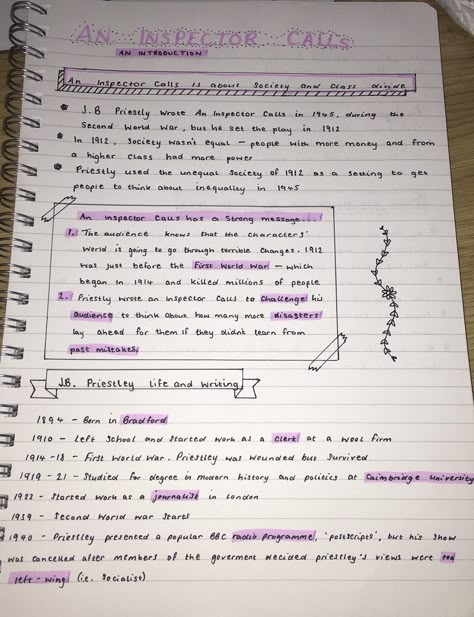 AN INSPECTOR CALLS
AN INTRODUCTION
An Inspector Calls is about Society and Class divide
J.B Priestly wrote An Inspector Calls in 1945, during the
Second World War, but he set the play in 1912
In 1912, society wasn't equal - people with more money and from
a higher class had more power
Priestly used the unequal society of 1912 as a setting to get
people to think about inequality in 1945
An Inspector Calls has a strong message...
1. The audience knows that the characters'
world is going to go through terrible changes. 1912
was just before the First World War - which
began in 1914 and killed millions of people
2. Priestly wrote an Inspector Calls to challenge his
audience to think about how many more disasters
lay ahead for them if they didn't learn from
past mistakes.
J.B. Priestley life and writing
1894 - Born in Bradford
1910 - Left School and started work as a clerk at a wool firm
1914-18 - First World War. Priestley was wounded but survived
1919-21 - Studied for degree in modern history and politics at Caimbridge university
1922 - Started work as a journalist in London
1939 - Second World War starts
1940 - Priestley presented a popular BBC radio programme, 'postscripts', but his show
was cancelled after members of the goverment decided priestley's views were too
left-wing (i.e. socialist)